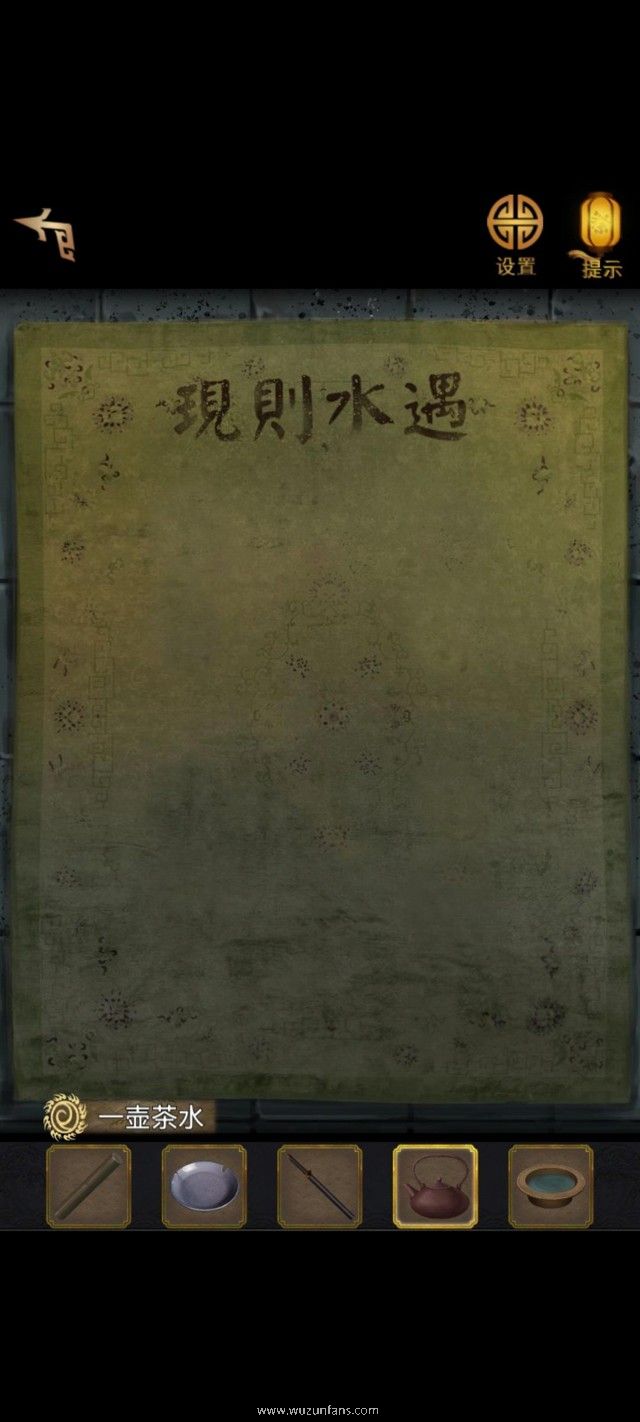 设置
提示
現則水遇
一壶茶水
www.wuzunfans.com